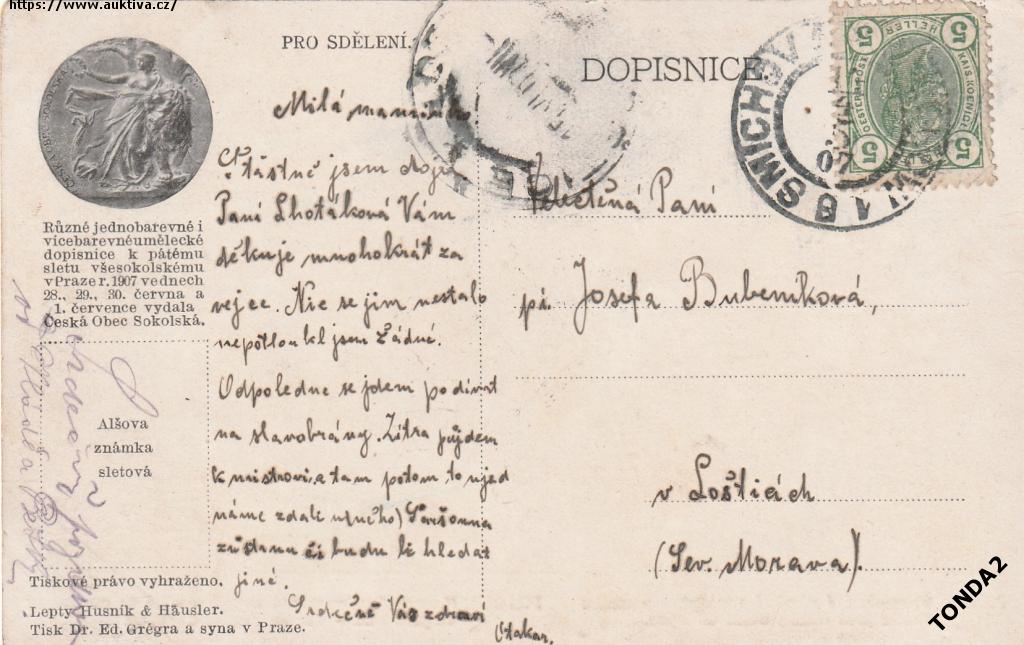 https://www.auktiva.cz/
PRO SDĚLENÍ.
DOPISNICE.
Různé jednobarevné i
vícebarevnéumělecké
dopisnice k pátému
sletu všesokolskému
v Praze r. 1907 ve dnech
28., 29., 30. června a
1. července vydala
Česká Obec Sokolská.
Alšova
známka
sletová
Tiskové právo vyhraženo.
Lepty Husník & Häusler.
Tisk Dr. Ed. Grégra a syna v Praze.
Milá maminko
Šťastně jsem dojel
Paní Lhotáková Vám
děkuje mnohokrát za
vejce. Nic se jim nestalo
nepotloukl jsem žádné.
Odpoledne se jdem podívat
na slavobrány. Zítra půjdem
k mistrovi, a tam potom to ujed
náme zdale u
zůstanu či budu li hledat
jiné.
Srdečně Vás zdraví
Otakar.
Velectěná Paní
pí. Josefa Bubeníková,
v Lošticích
(Sev. Morava).
SMÍCHOV
5 HELLER 5
KAIS. KOENIGL.
5 5
TONDA2